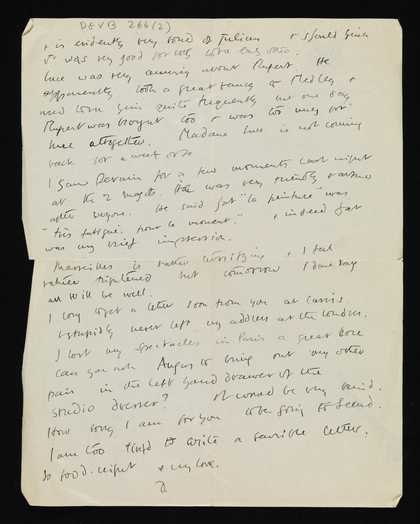 DEVB 266(2)
& is evidently very fond of Julian & should give
was very good for
Luce was very amusing about Rupert. He
apparently took a great fancy to Medley &
used to give quite frequently but one day
Rupert was brought too & was too much for
Luce altogether. Madame Luce is not coming
back for a week or so
I saw Derain for a few moments last night
at the 2 Magots. He was very friendly & asked
after Wogan. He said that "la peinture" was
"très fatigué. pour le moment." & indeed that
was my brief impression.
Marseilles is rather terrifying & I feel
rather frightened but tomorrow I daresay
all will be well.
I long to get a letter soon from you at Cassis
I stupidly never left my address at the Londres.
I lost my spectacles in Paris a great bore
Can you ask Angus to bring out my other
pair in the left hand drawer of the
studio dresser? It would be very kind.
How sorry I am for you to be going to Seend.
I am too tired to write a sensible letter.
So good-night & my love.
D